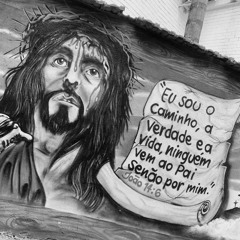 "EU SOU O
CAMINHO, A
VERDADE E A
VIDA, NINGUÉM
VEM AO PAI
SENÃO POR MIM."
João 14:6